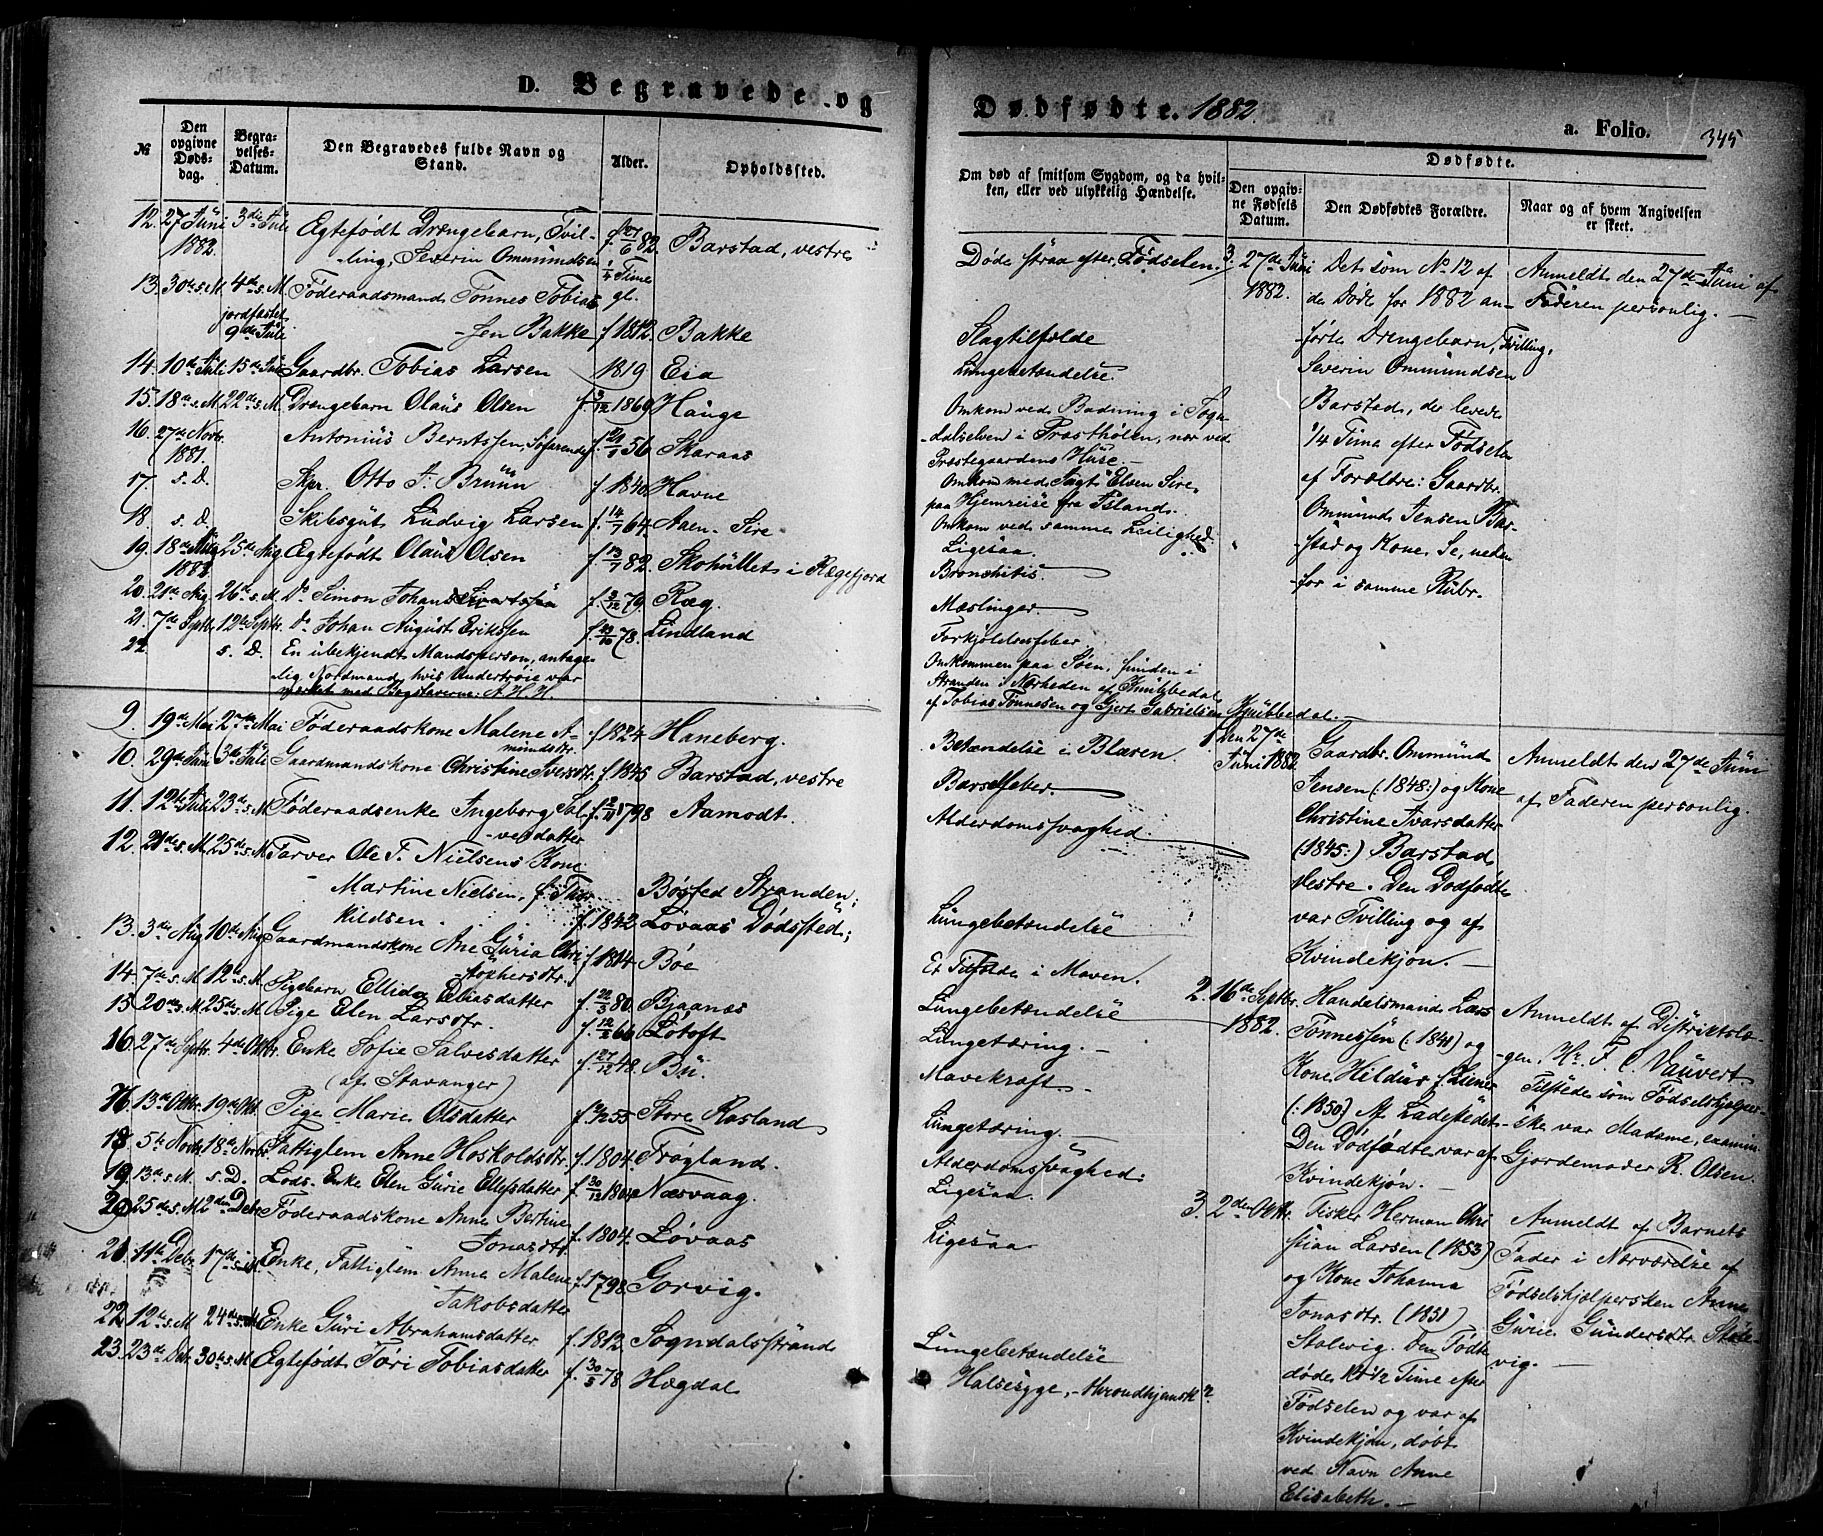 D. Begravede og
№
Den opgivne Dødsdag.
Begravelses-Datum.
Den Begravedes fulde Navn og Stand.
Alder.
Opholdssted.
12. 27 Juni 1882. 3die Juli Ægtefødt Drengebarn, Tvil- f. 27/6 82. Barstad, vestre
-ling, Severin Ommundsen 1/4 Time gl.
13. 30te s. M. 4de s. M. Føderaadsmand Tønnes Tobias-
jordfæstet 9de Juli -sen Bakke f 1812. Bakke
14. 10de Juli 15de Juli Gaardbr. Tobias Larsen 1819 Eia
15. 18de s. M. 22de s. M. Drengebarn Olaus Olsen f. 1869 Hauge
16. 27de Novbr. 1881. Antonius Berntssen, Søfarende f. 56 Skaraas
17. s. D. Skpr. Otto J. Bruun f. 1840. Havne
18. s. D. Skibsgut Ludvig Larsen f. 14/7 64. Aaen-Sire
19. 18de Aug 1882 25de Aug Ægtefødt Olaus Olsen f. 13/7 82. Skohullet i Rægefjord
20. 21de Aug 26de s. M. Do Simon Johan Sivertsen f. 2/12 79. Ræg.
21. 7de Septbr 12te Septbr. Do Johan August Erikssen f. 78. Lindland
22. s. D. En ubekjendt Mandsperson, antage-
-lig Nordmand, hvis Undertrøie var
mærket med Bogstaverne A. H. H.
9. 19de Mai 27de Mai Føderaadskone Malene A-
mundsdtr. f 1824 Haneberg.
10. 29de Juni 3die Juli Gaardmandskone Christine Iversdtr. f. 1845 Barstad, vestre
11. 12te Juli 23de s. M. Føderaadsenke Ingeborg Sal- 1798 Aamodt.
-vesdatter
12. 21de s. M. 25de s. M. Farver Ole F. Nielsens Kone
Martine Nielsen, f. Thor- Bosted Stranden;
kildsen. f. 1842. Løvaas Dødssted;
13. 3de Aug 10de Aug Gaardmandskone Ane Guria Chri-
-stophersdtr. f. 1814 Bøe
14. 7de s. M. 12te s. M. Pigebarn Ellida Eliasdatter f. 22/3 80. Bjaanæs
15. 20de s. M. 25de s. M. Pige Elen Larsdtr. f. 66 Lotoft
16. 27de Septbr. 4de Oktbr. Enke Sofie Salvesdatter f. 27/12 48. Bu.
(af Stavanger)
13de Oktbr. 19de Okt. Pige Marie Olsdatter f. 55 Store Rosland
18. 5te Novbr. 18de Novbr. Fattiglem Anne Hoskoldsdtr. f. 1804. Frøyland.
19. 13de s. M. s. D. Lods-Enke Elen Gurie Ellefsdatter f. 30/12 1804. Næsvaag.
20. 25de s. M. 2den Debr. Føderaadskone Anne Bertine
Jonasdtr. f. 1804. Løvaas
21. 11te Debr. 17de s. M. Enke, Fattiglem Anne Malene
Jakobsdatter f. 1798. Gorvig.
22. 12te s. M. 24de s. M. Enke Guri Abrahamsdatter f. 1812. Sogndalsstrand
23. 23de Debr. 30te s. M. Ægtefødt Tori Tobiasdatter f. 30/3 78 Hægdal
Dødfødte. 1882.
a. Folio. 345
Om død af smitsom Sygdom, og da hvilken, eller ved ulykkelig Hændelse.
Dødfødte.
Den opgivne Fødsels Datum.
Den Dødfødtes Forældre.
Naar og af hvem Angivelsen er skeet.
Døde straa efter Fødselen.
Slagtilfælde
Lungebetændelse.
Omkom ved Badning i Sogn-
-dalselven i Præsthølen, nær ved
Præstegaardens Huse.
Omkom med Jagt "Elsen" Sire,
paa Hjemreise fra Island.
Omkom ved samme Leilighed.
Ligesaa.
Bronchitis.
Mæslinger.
Forkjølelsesfeber
Omkommen paa Søen, funden i
Stranden i Nærheden af Knubbedal
af Tobias Tønnesen og Gjert Gabrielsen Knubbedal.
Betændelse i Blæren.
Barselfeber.
Alderdomssvaghed.
Lungebetændelse
Et Tilfælde i Maven.
Lungebetændelse
Lungetæring.
Mavekræft
Lungetæring.
Alderdomssvaghed.
Ligesaa
Ligesaa
Lungebetændelse
Halssyge, -throndhjemsk?
3. 27de Juni 1882.
Det som No 12 af
de Døde for 1882 an-
-førte Drengebarn, Tvilling,
Severin Ommundsen
Barstad, der levede
1/4 Time efter Fødselen
af Forældre: Gaardbr.
Ommund Jensen Bar-
-stad og Kone. Se neden-
-for i samme Rubr.
Anmeldt den 27de Juni af
Faderen personlig.
1 Den 27de Juni 1882
Gaardbr. Ommund
Jensen (:1848:) og Kone
Christine Ivarsdatter
(:1845:) Barstad
Vestre. Den Dødfødte
var Tvilling og af
Kvindekjøn.
Anmeldt den 27de Juni
af Faderen personlig.
2. 16de Septbr. 1882.
Handelsmand Lars
Tønnessen (:1841) og
Kone Hildus f. Liener
(:1850) Aa Ladested
Den Dødfødte var af
Kvindekjøn.
Anmeldt af Distriktslæ-
-gen, Hr. F. C. Vauvert
Tilstede som Fødselshjælper-
-ske var Madame, examin.
Gjordemoder R. Olsen.
3. 2den Oktbr.
Fisker Herman Chri-
stian Larsen (1853)
og Kone Johanna
Jonasdtr. (1851)
Stolsvig. Den Fødte
døde Kl. 1/2 Time efter
Fødselen og var af
Kvindekjøn, døbt
ved Navn Anne
Elisabeth.
Anmeldt af Barnets
Fader i Nærværelse af
Fødselshjælpersken Anne
Gurie Gundersdtr. Stols-
vig.